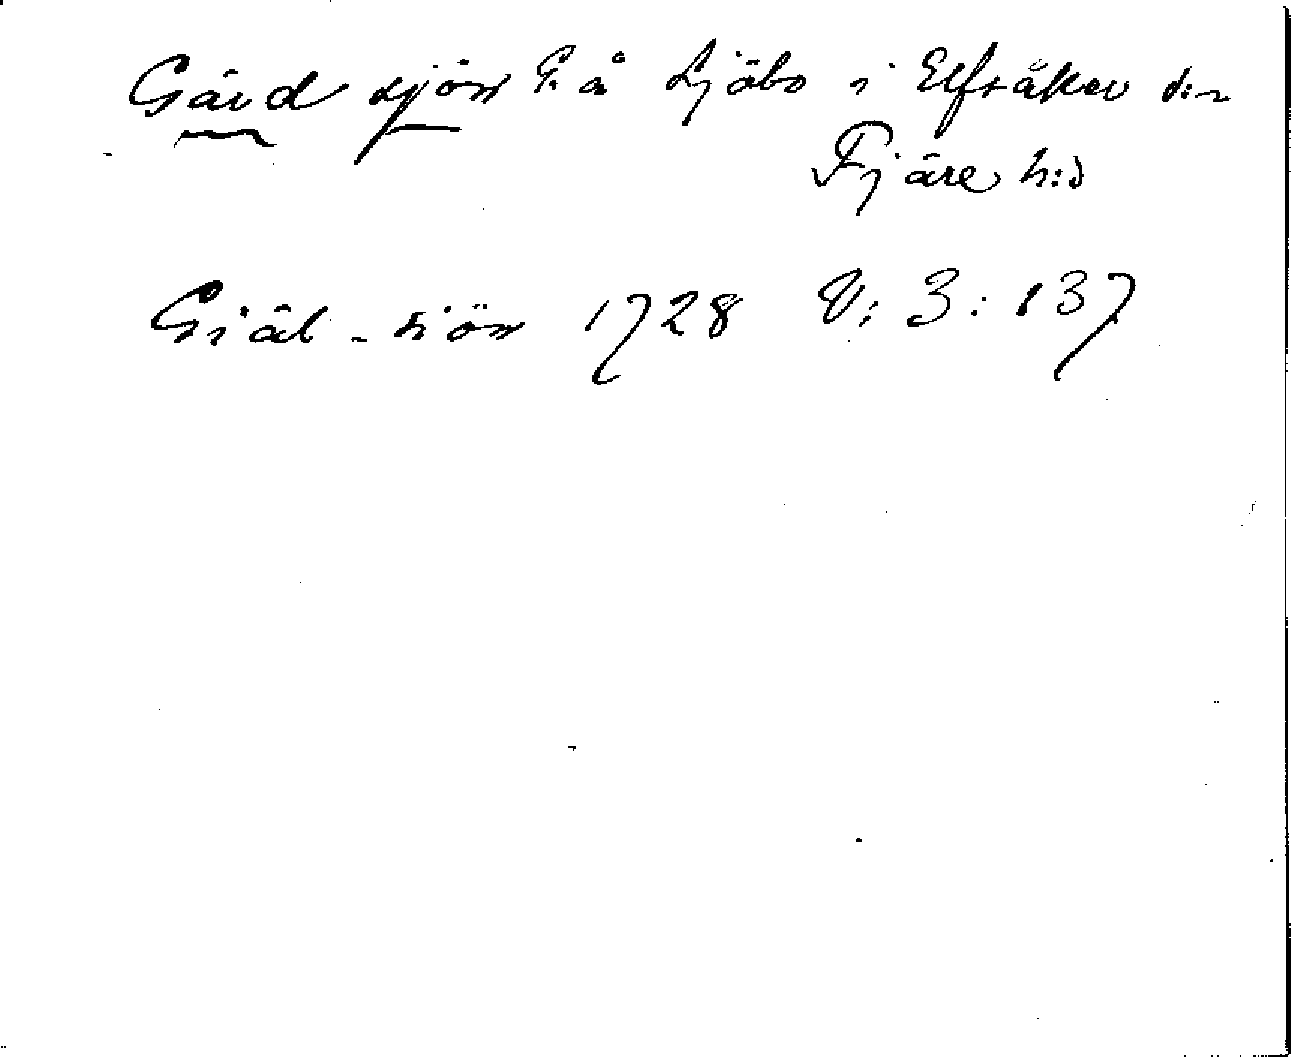 Gärdsjön G. å Sjöbo i Elfsåker s:n
Fjäre h:d
Giäl-siön 1728 V: 3: 137